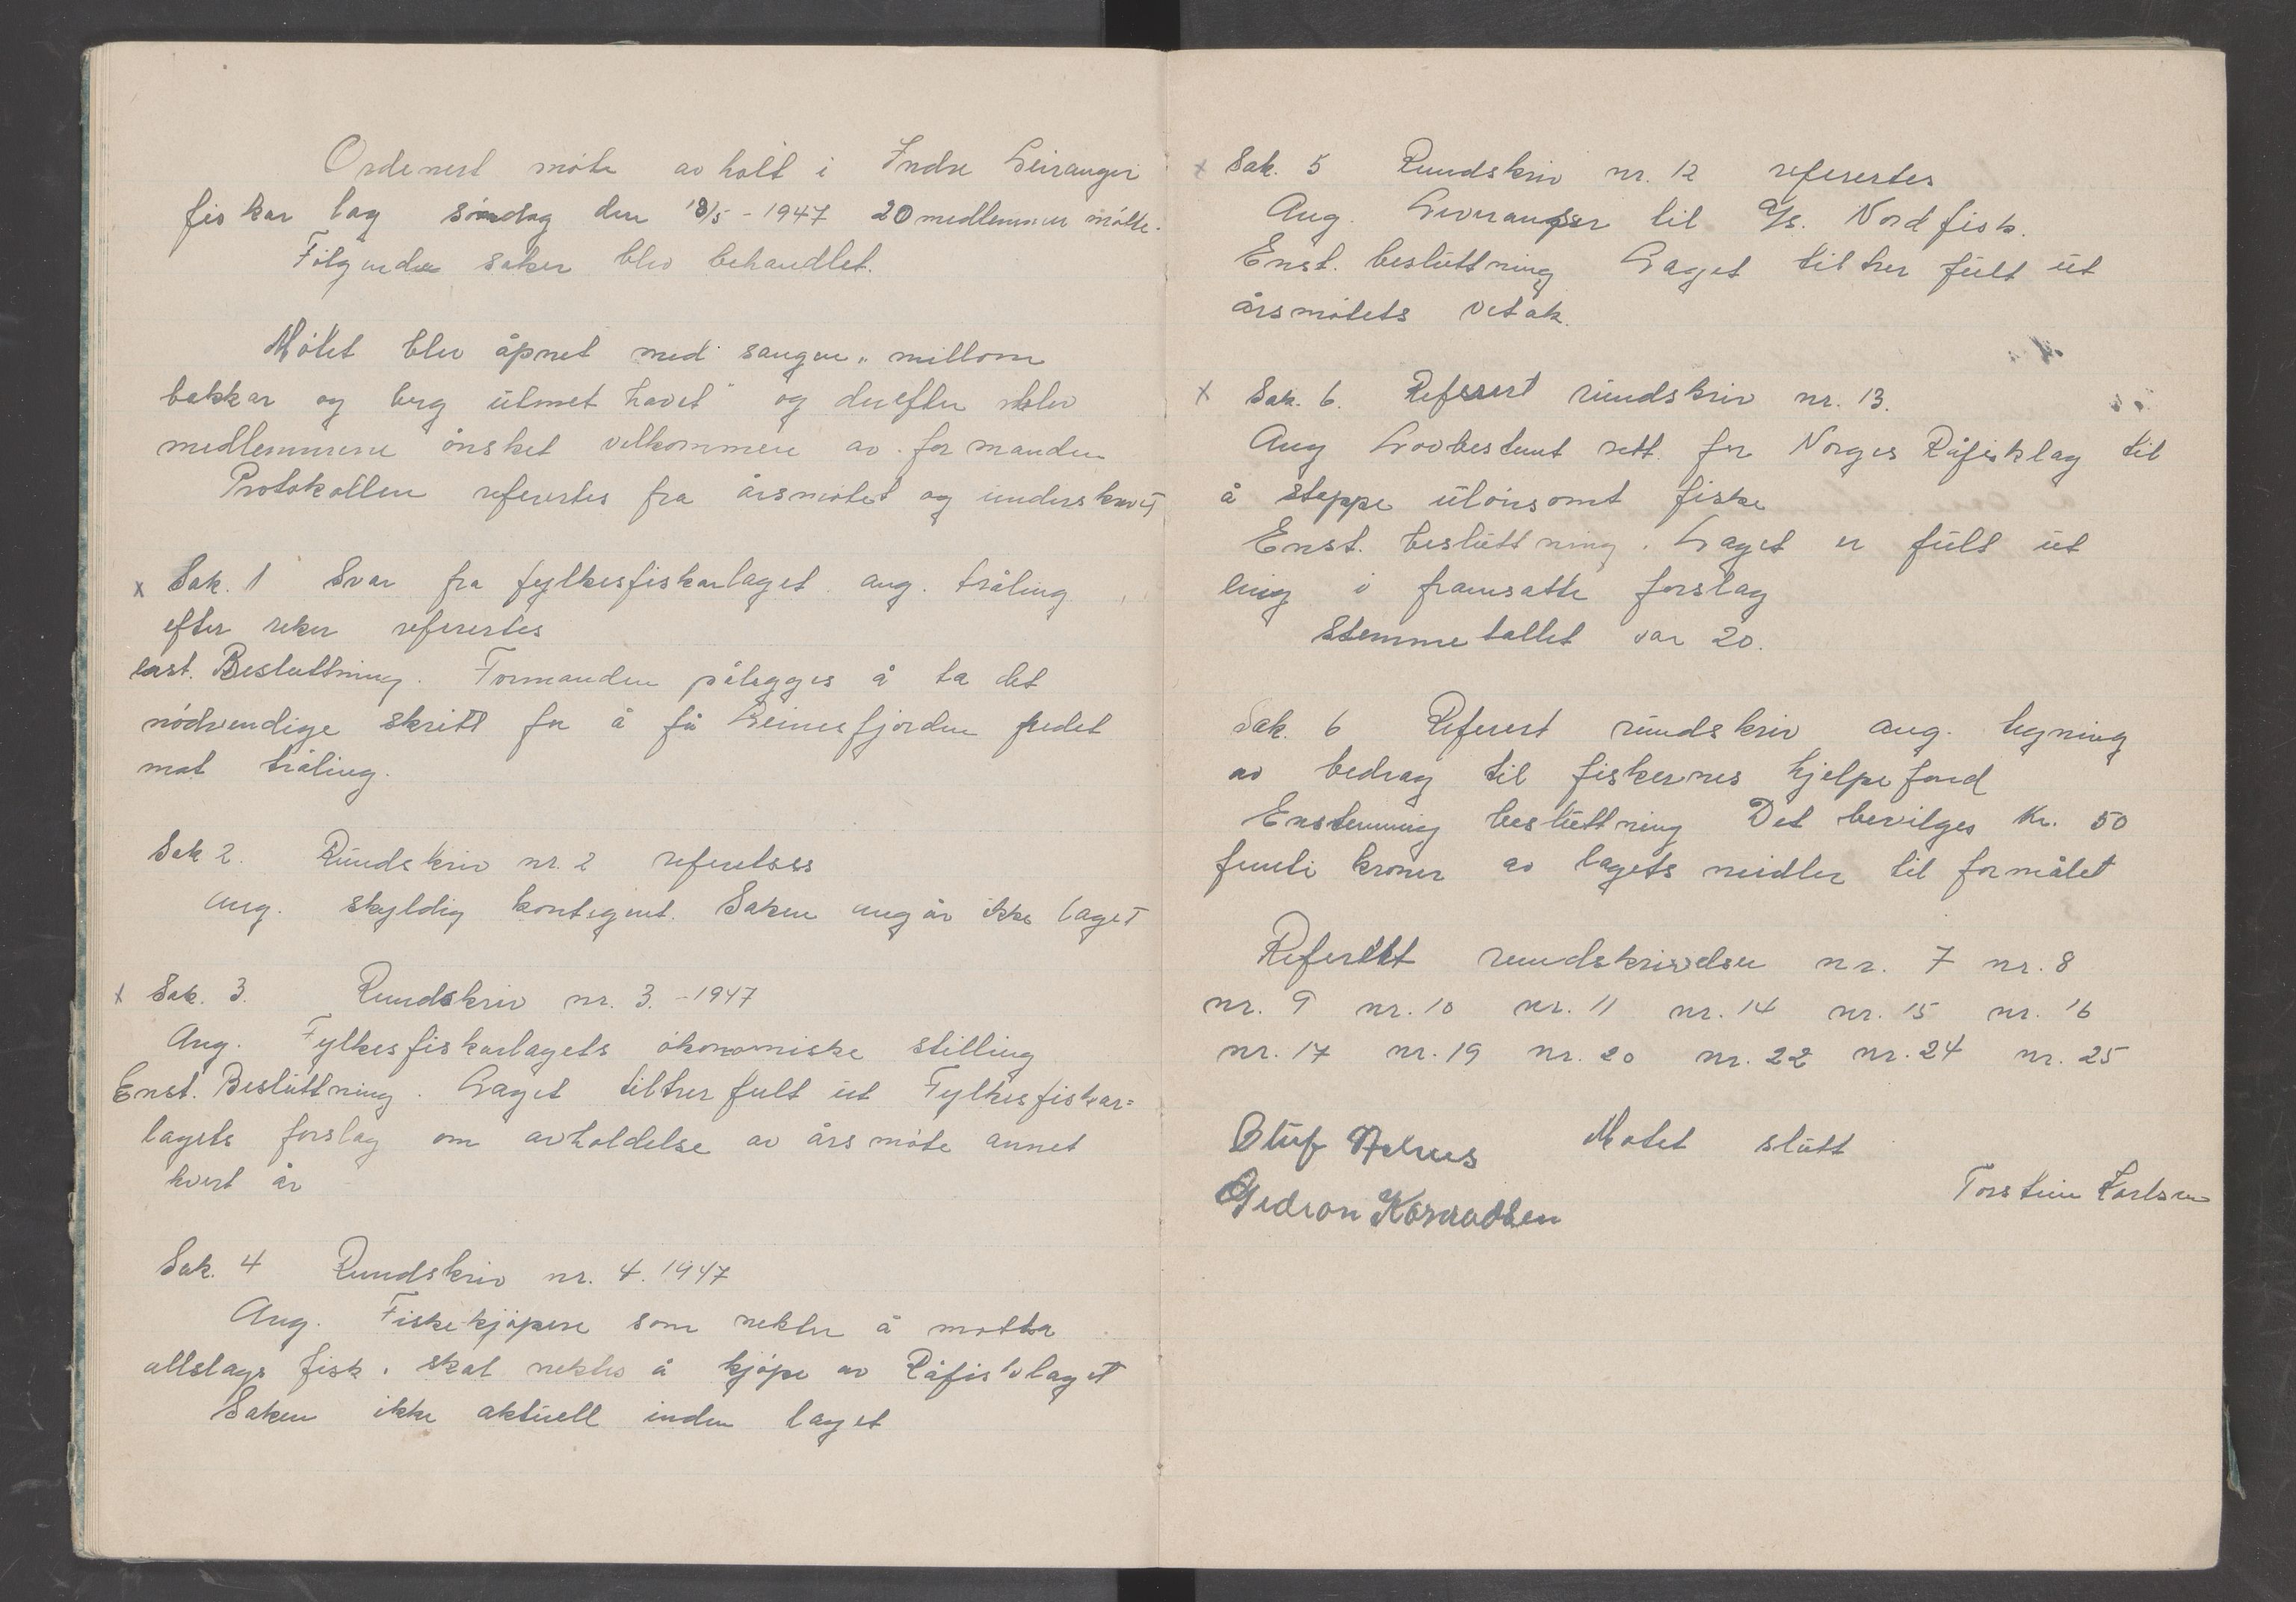 Ordenert möte avholt i Indre Leiranger
fiskarlag söndag den 18/5 - 1947 20 medlemmer mötte.
Fölgende saker blev behandlet.
Mötet blev åpnet med sangen „millom
bakkar og berg utmet havet" og derefter blev
medlemmene önsket velkommen av formanden
Protokollen referertes fra årsmötet og underskrevet
x Sak. 1 Svar fra fylkesfiskarlaget ang. tråling
efter reker referertes
enst. Besluttning. Formanden pålegges å ta det
nödvendige skritt for å få Leinesfjorden fredet
mot tråling.
Sak 2. Rundskriv nr. 2 referertes
Ang. skyldig kontigent. Saken angår ikke laget
x Sak. 3. Rundskriv nr. 3. - 1947
Ang. Fylkesfiskarlagets ökonomiske stilling
Enst. Besluttning. Laget tiltrer fult ut Fylkesfiskar=
lagets forslag om avholdelse av årsmöte annet
hvert år
Sak. 4 Rundskriv nr. 4. 1947
Ang. Fiskekjöpere som nekter å motta
allslags fisk. skal nektes å kjöpe av Råfisklaget
Saken ikke aktuell inden laget
x Sak. 5 Rundskriv nr. 12 referertes
Ang. Leveranser til A/s. Nordfisk.
Enst. besluttning Laget tiltrer fult ut
årsmötets vetak.
x Sak. 6. Referert rundskriv nr. 13.
Ang Lovbestemt rett for Norges Råfisklag til
å stoppe ulönsomt fiske
Enst. besluttning. Laget er fult ut
enig i framsatte forslag
Stemmetallet var 20.
Sak. 6 Referert rundskriv ang. tegning
av bedrag til fiskernes hjelpefond
Enstemmig besluttning Det bevilges Kr. 50
femti kroner av lagets midler til formålet
Referert rundskrivelser nr. 7 nr. 8
nr. 9 nr. 10 nr. 11 nr. 14 nr. 15 nr. 16
nr. 17 nr. 19 nr. 20 nr. 22 nr. 24 nr. 25
Oluf Mötet slutt
Torstein Karlsen
Gedion Konradsen